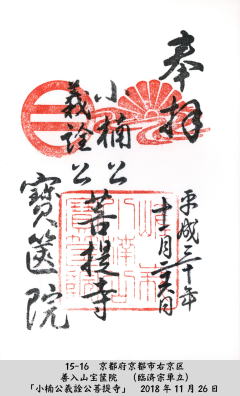 奉拝
平成三十年
十一月二六日
小楠公
義詮公
菩提寺
寶篋院
15-16 京都府京都市右京区
善入山宝筐院 (臨済宗単立)
「小楠公義詮公菩提寺」 2018年11月26日